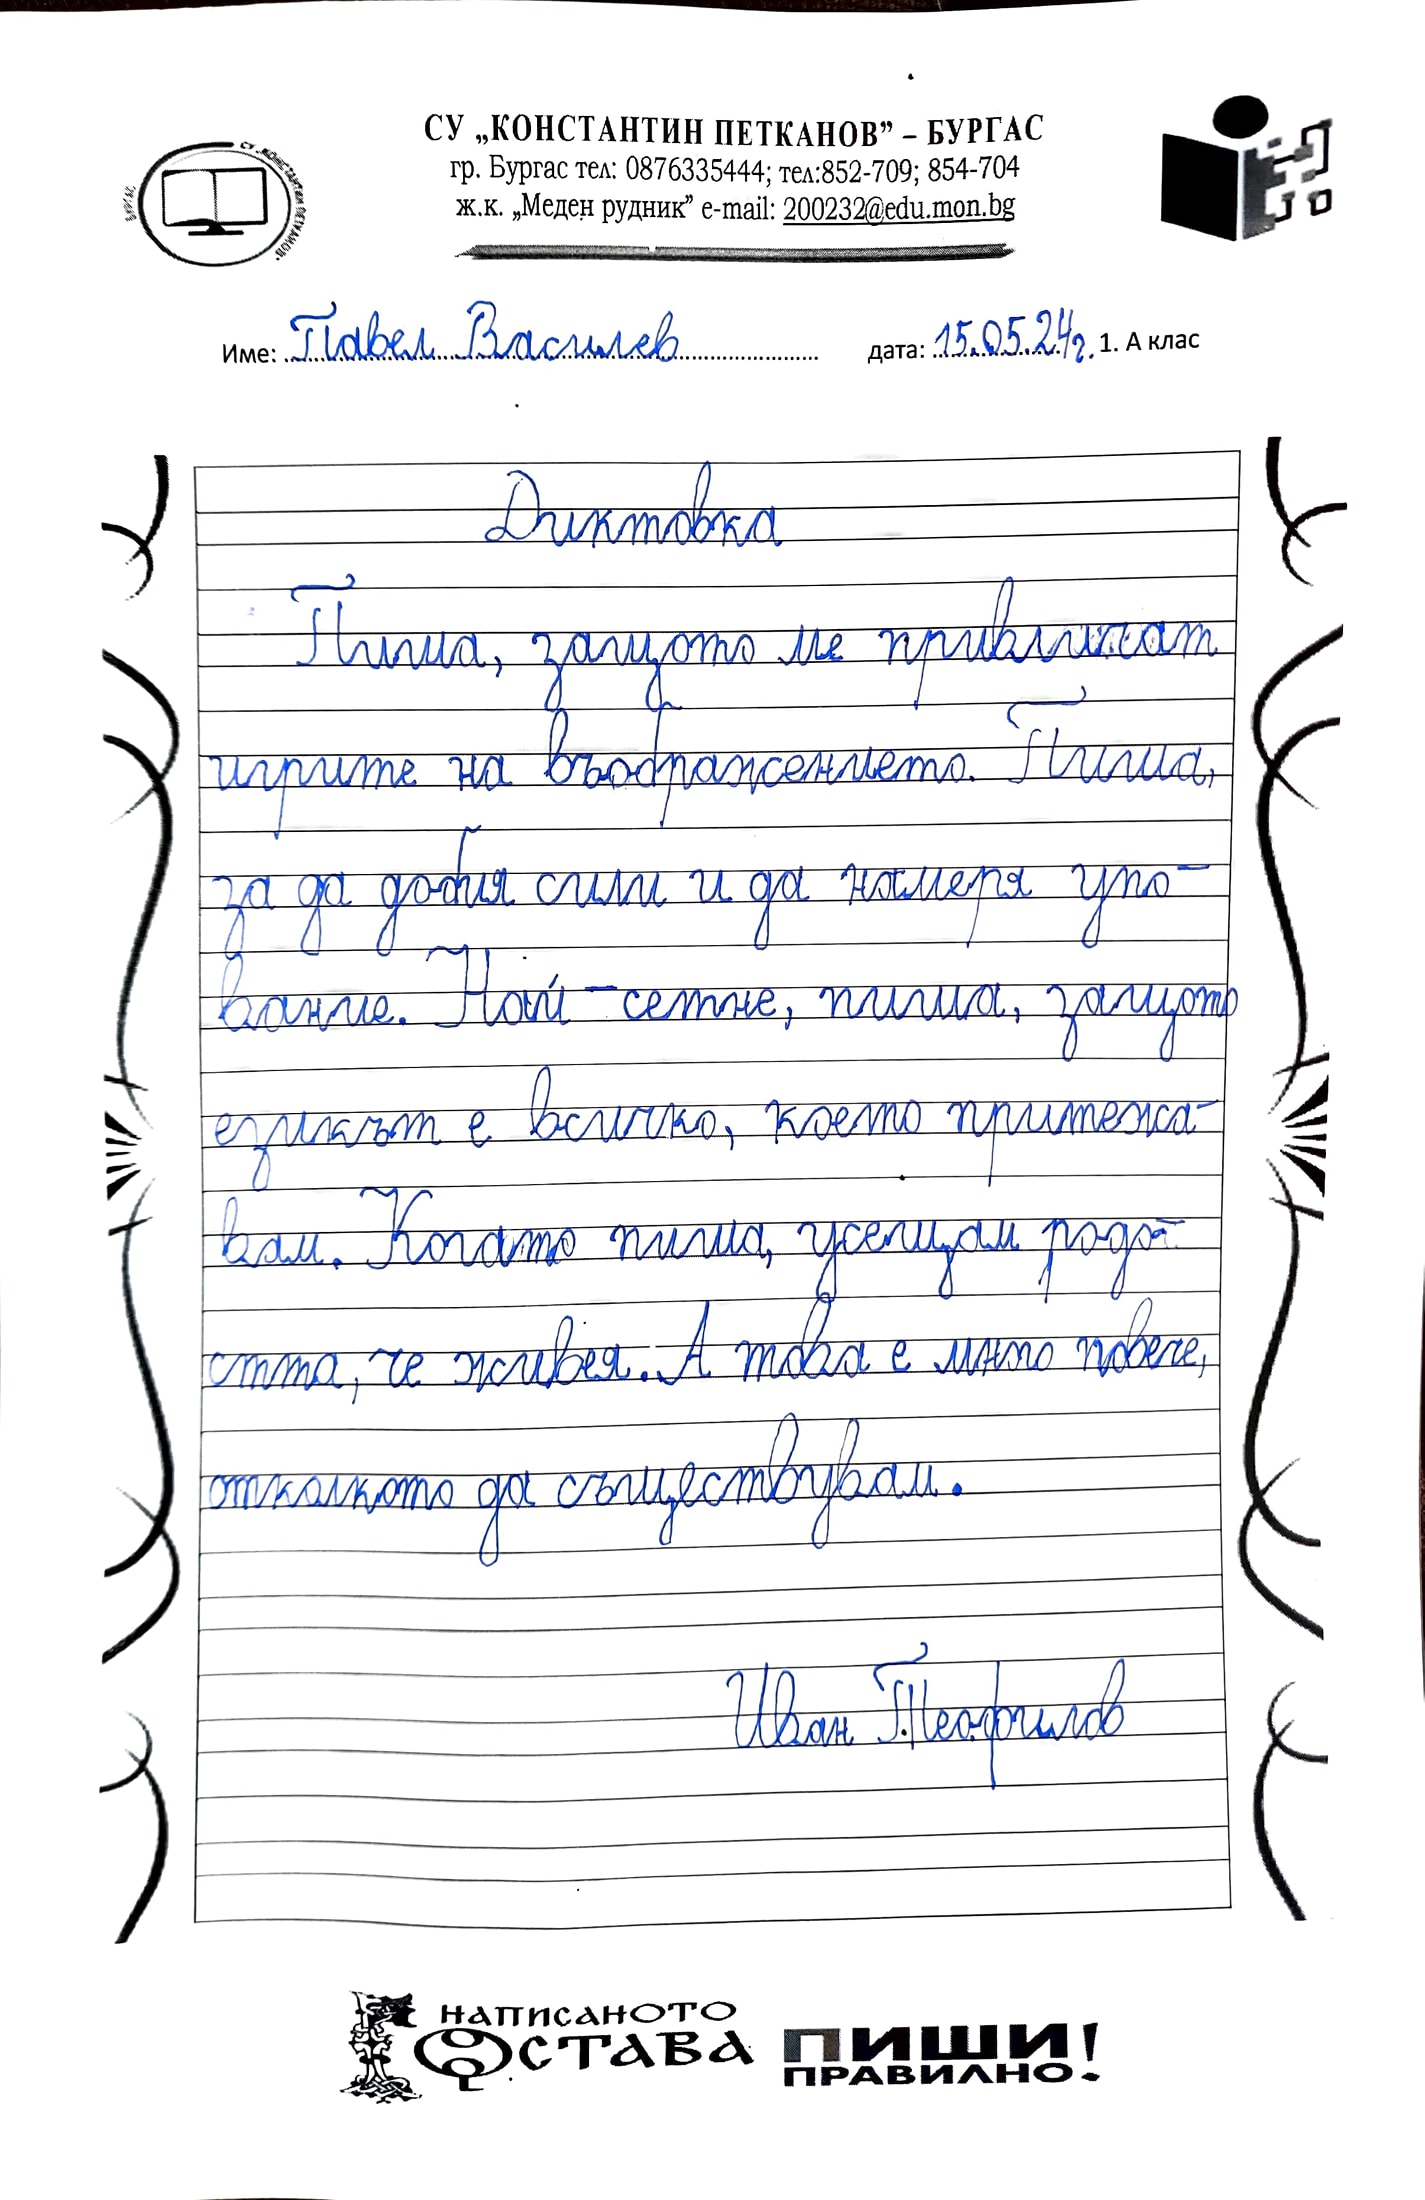 СУ „КОНСТАНТИН ПЕТКАНОВ” – БУРГАС
гр. Бургас тел: 0876335444; тел:852-709; 854-704
ж.к. „Меден рудник” e-mail: 200232@edu.mon.bg
СУ „КОНСТАНТИН ПЕТКАНОВ” БУРГАС
Име: Павел Василев дата: 15.05.24г. 1. А клас
Диктовка
Пиша, защото ме привличат
игрите на въображението. Пиша,
за да добия сили и да намеря упо-
вание. Най-сетне, пиша, защото
езикът е всичко, което притежа-
вам. Когато пиша, усещам радо-
стта, че живея. А това е много повече,
отколкото да съществувам.
Иван Теофилов
НАПИСАНОТО
ОСТАВА
ПИШИ
ПРАВИЛНО!